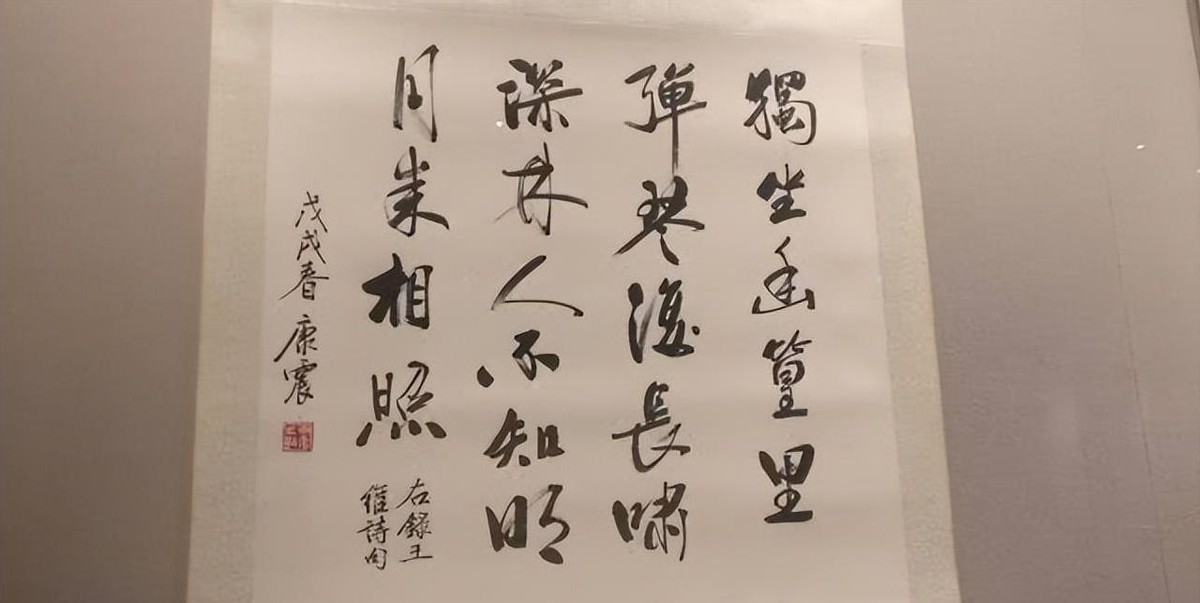 獨坐幽篁里
彈琴復長嘯
深林人不知明
月来相照
右錄王
維詩句
戊戌春 康震